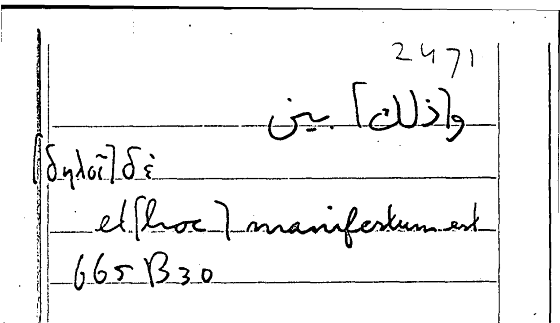 2471
و[ذلك] بين
[δηλοῖ] δὲ
et [hoc] manifestum est
665 B 30